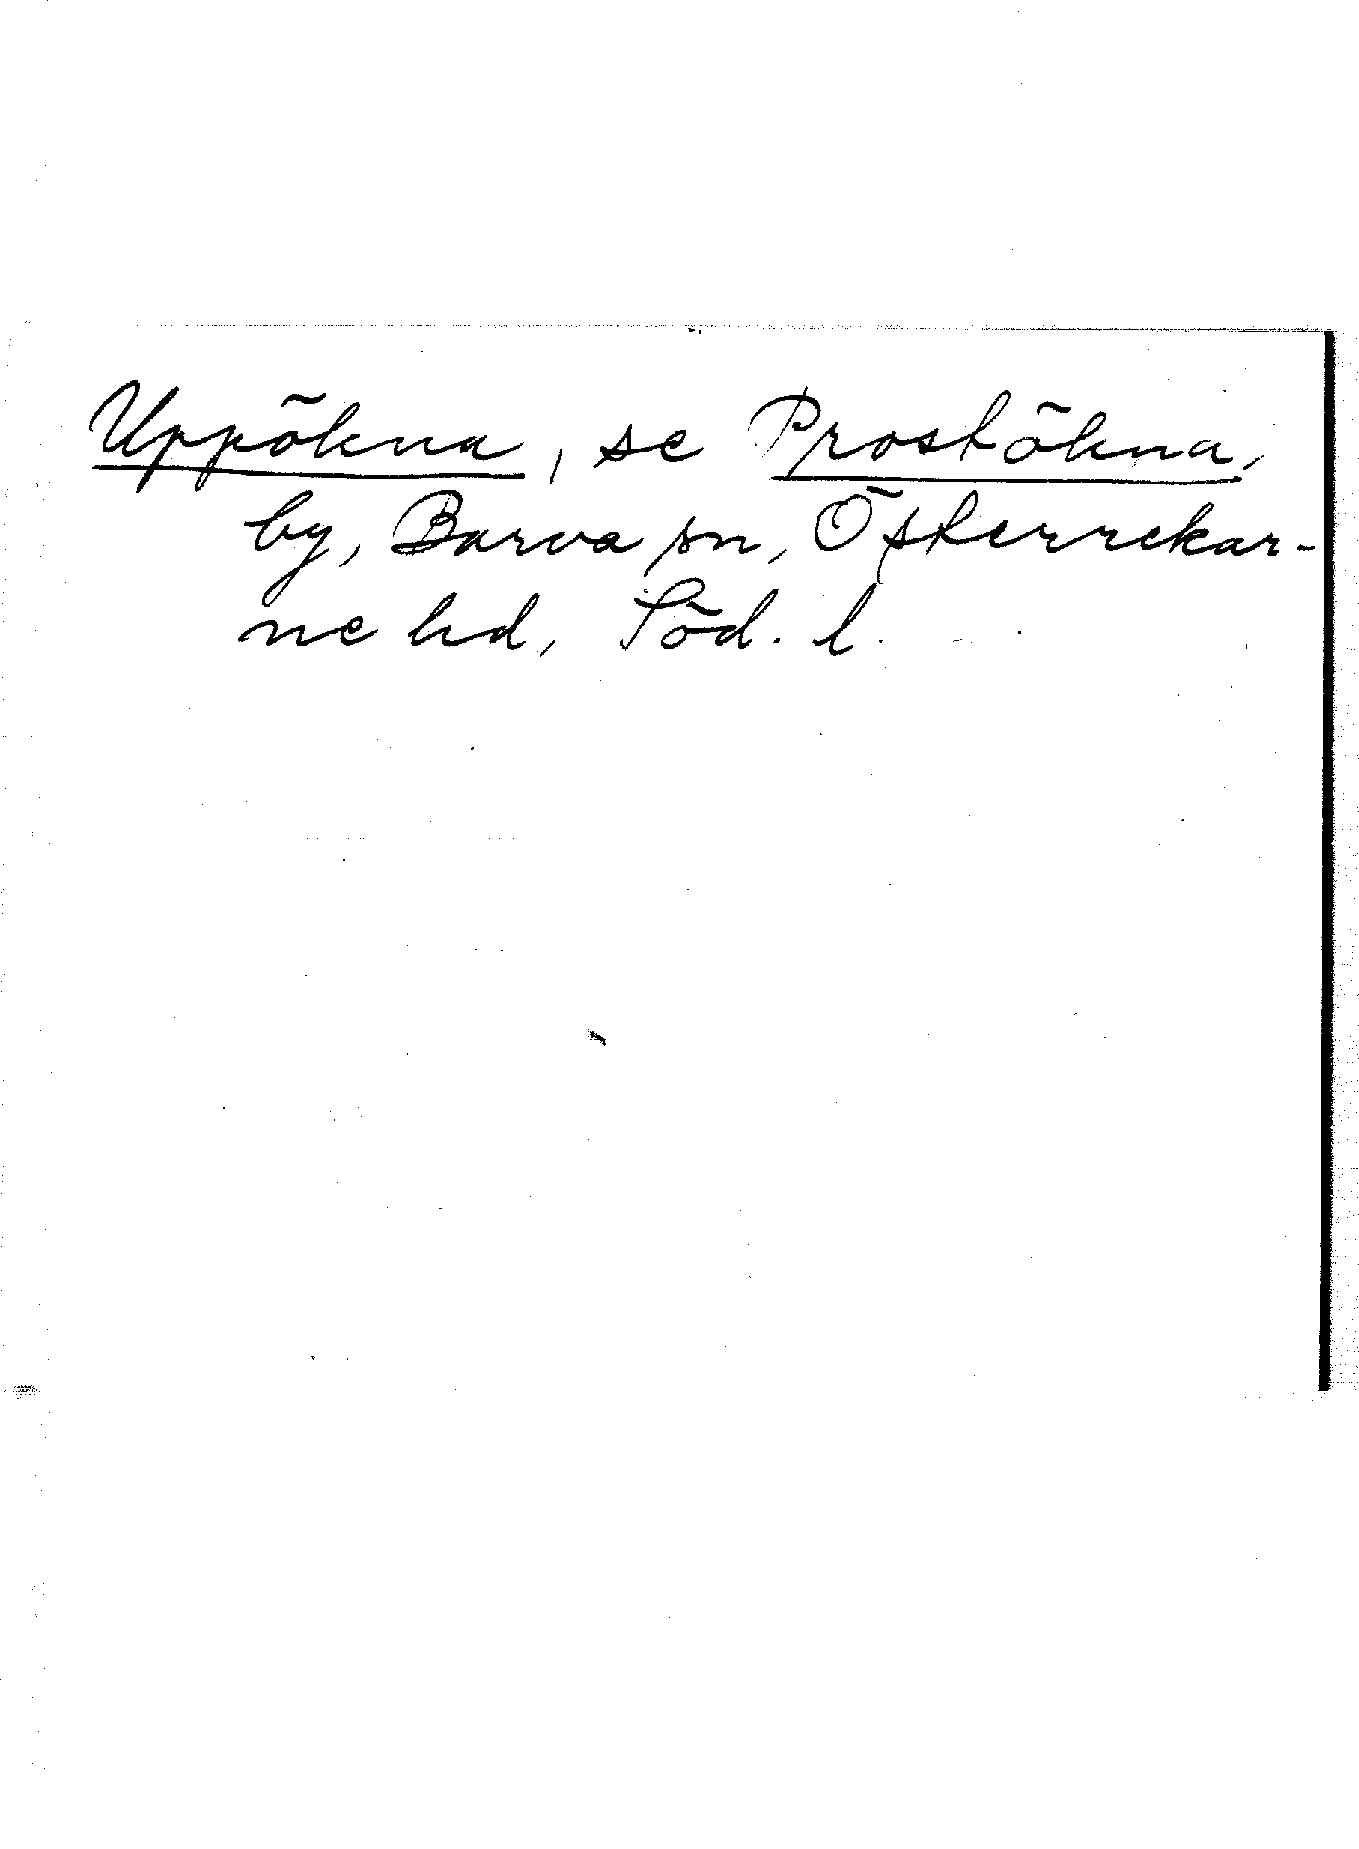 Uppökna, se Prostökna,
by, Barva sn, Österrekar-
ne hd, Söd. l.